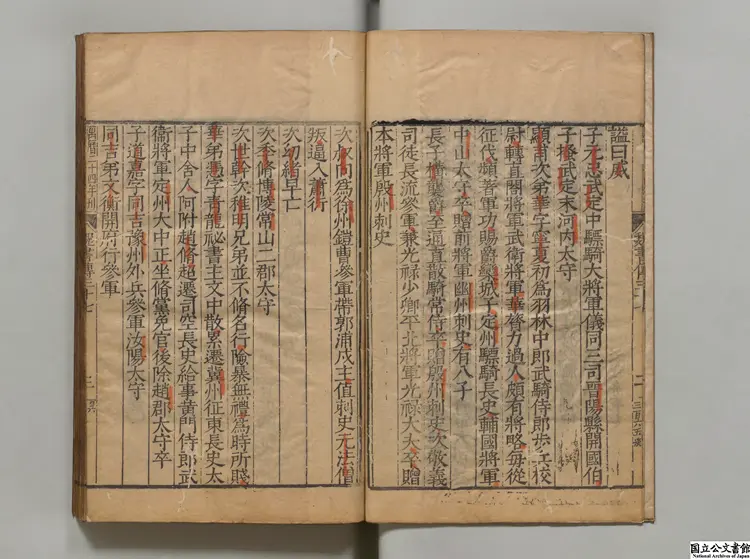 諡曰威
子元忠武定中驃騎大將軍儀同三司晋陽縣開國伯
子搔武定末河內太守
顯甫次弟華字寧夏初為羽林中郎武騎侍郎步兵校
尉轉直閤將軍武衛將軍華膂力過人頗有將略每從
征伐頻著軍功賜爵欒城子定州驃騎長史輔國將軍
中山太守卒贈前將軍幽州刺史有八子
長子構襲爵至通直散騎常侍卒贈殷州刺史次敬義
司徒長流參軍兼光祿少卿平北將軍光祿大夫卒贈
本將軍殷州刺史
次叔向為徐州鎧曹參軍帶郭浦戍主值刺史元法僧
叛逼入蕭衍
次幼緒早亡
次季脩博陵常山二郡太守
次世幹次稚明兄弟並不脩名行險暴無禮為時所賤
華弟憑字青龍祕書主文中散累遷冀州征東長史太
子中舍人阿附趙脩超遷司空長史給事黃門侍郎武
衛將軍定州大中正坐脩黨免官後除趙郡太守卒
子道嘉字同吉豫州外兵參軍汝陽太守
同吉弟文衡開府行參軍
萬曆二十四年刊 魏書傳三十七 三
国立公文書館
National Archives of Japan